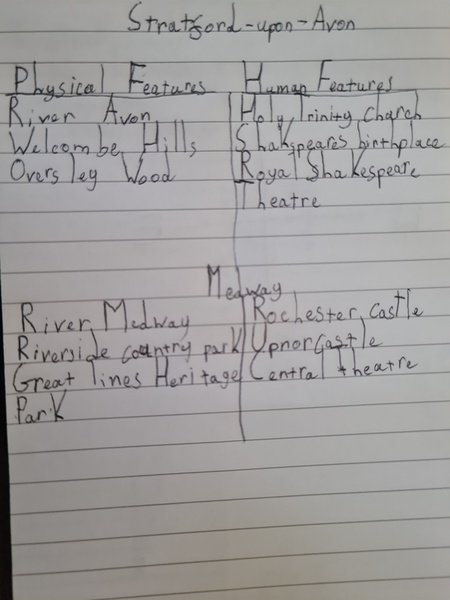 Stratsford-upon-Avon
Physical Features Human Features
River Avon Holy Trinity charch
Welcombe Hills Shakspeares birthplace
Overs ley Wood Royal Shakespeare
Theatre
Medway
River Medway Rochester castle
Riverside country park Upnor castle
Great lines Heritage Central theatre
Park